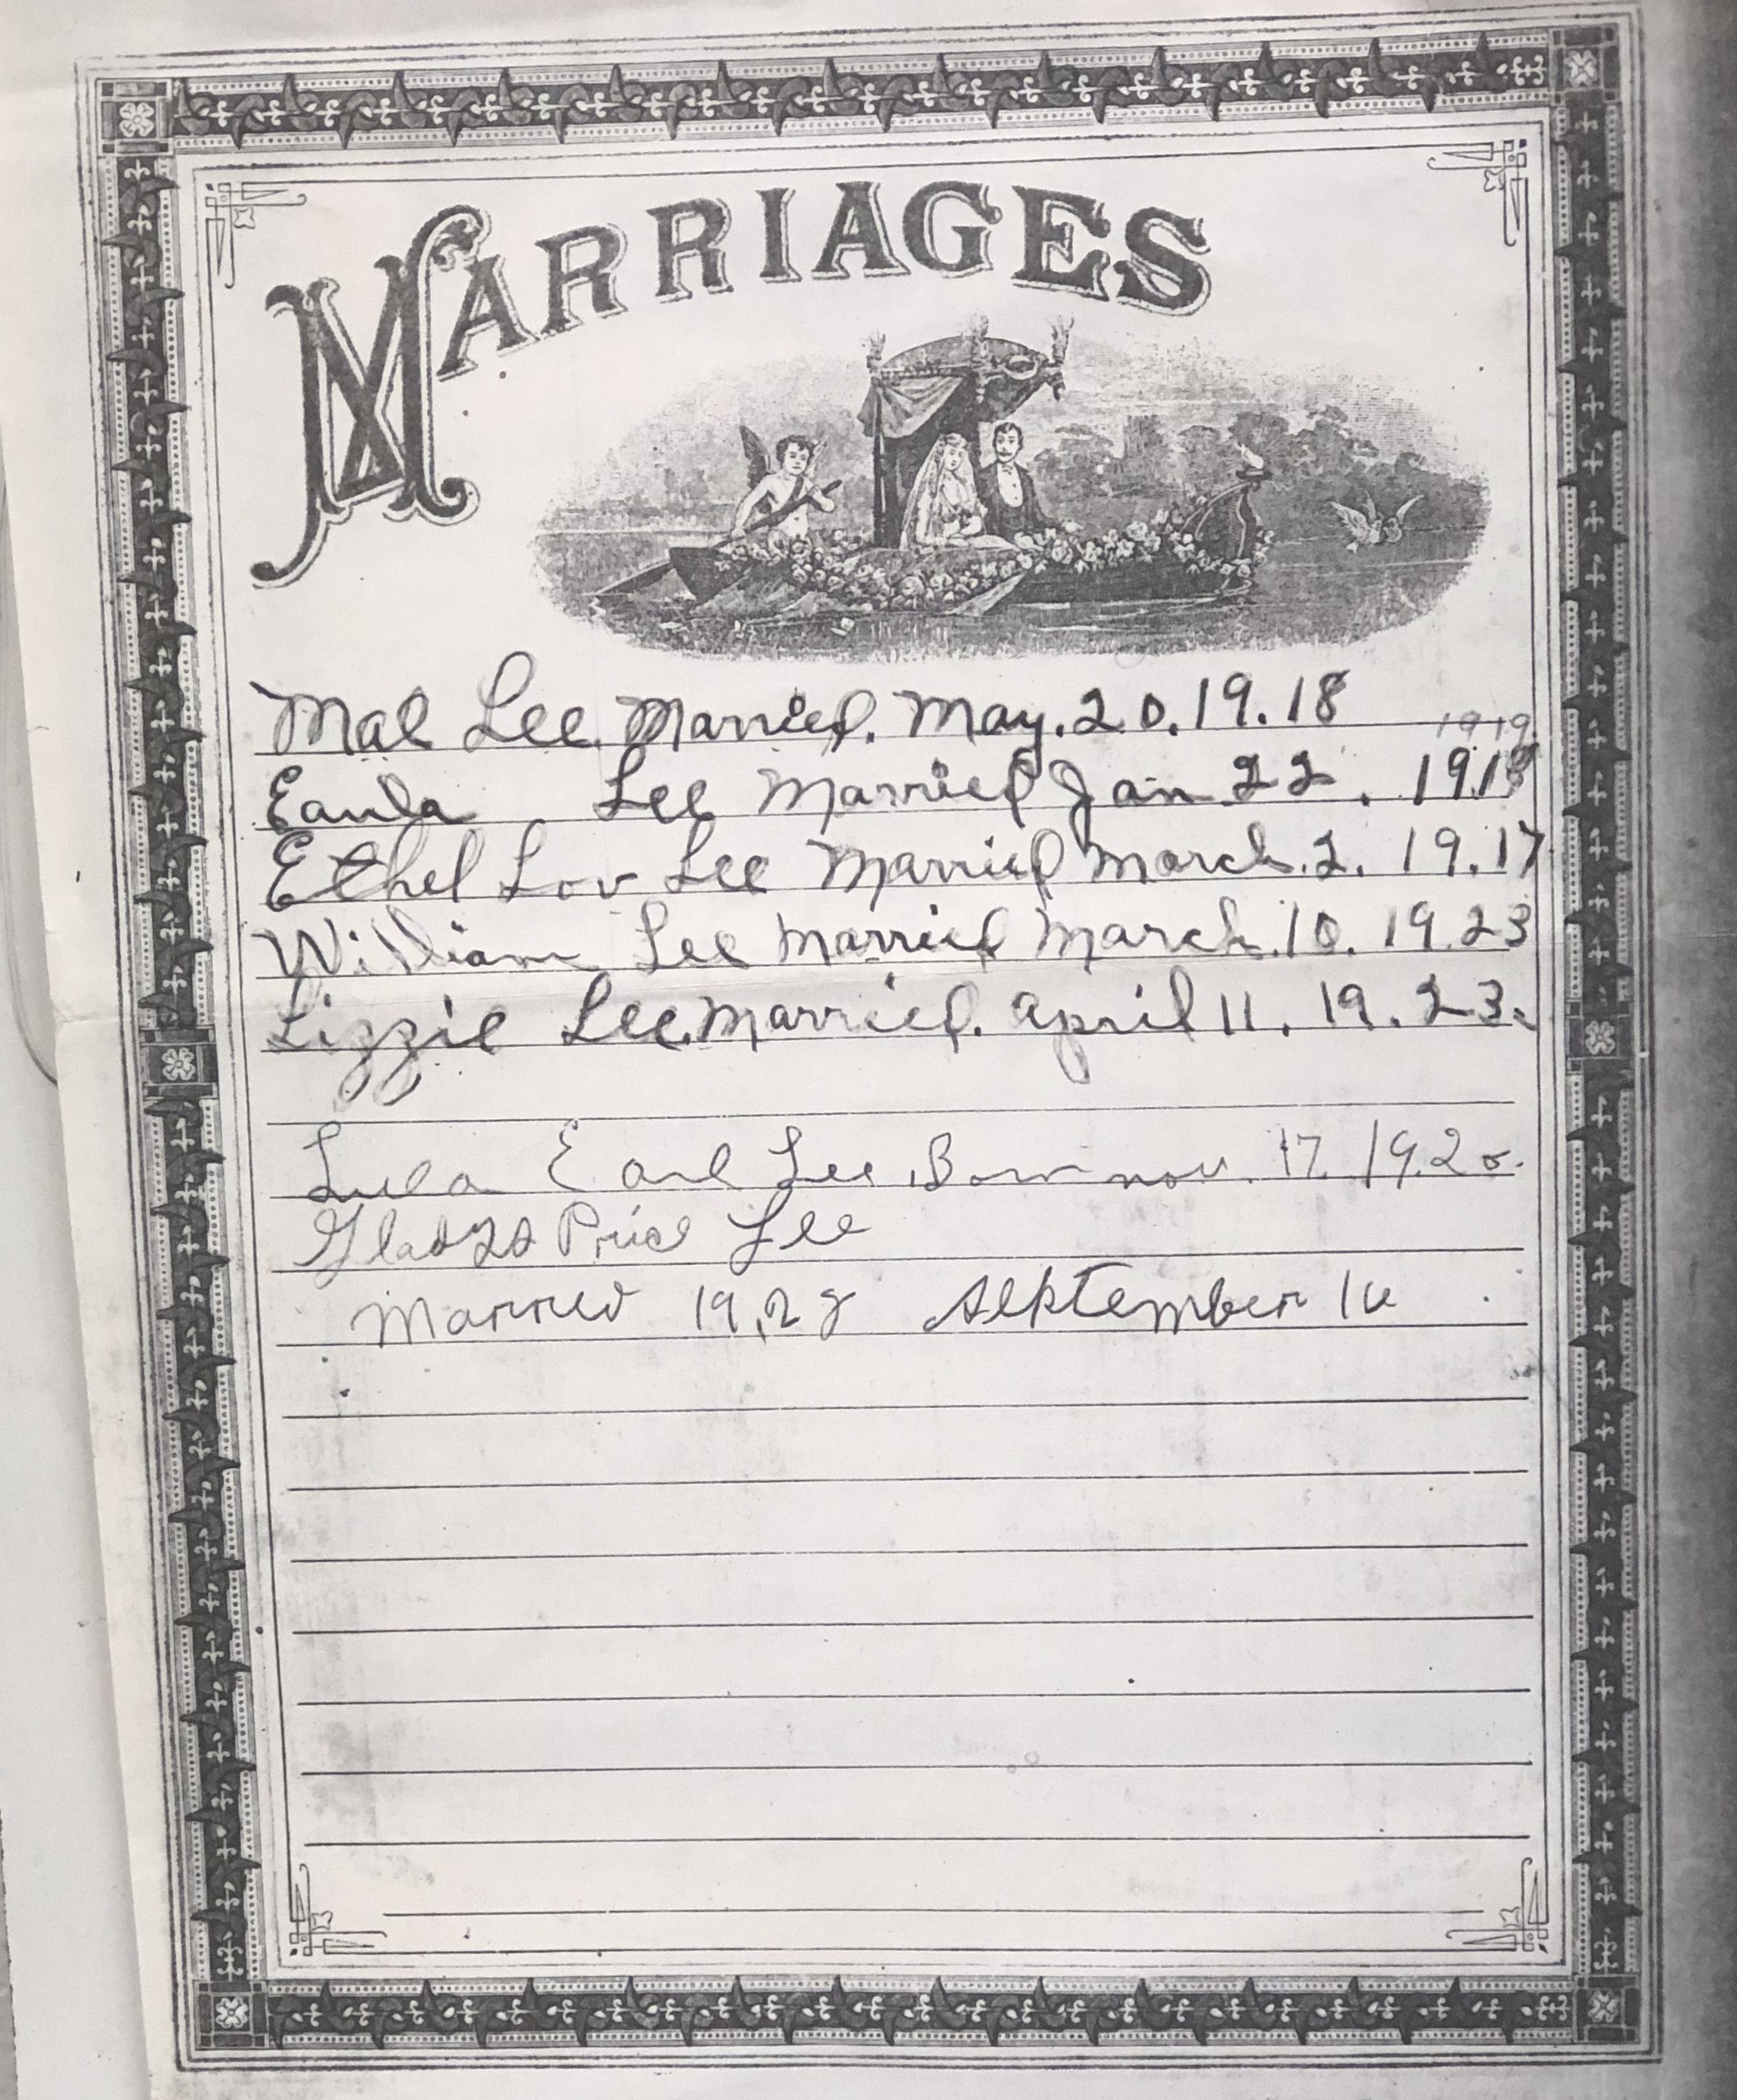 MARRIAGES
Mae Lee. Married. May. 20. 19. 18
1919
Eaula Lee Married Jan 22. 191
Ethel Lov Lee Married March. 2. 19. 17
William Lee Married March. 10. 19. 23
Lizzie Lee. Married. april 11. 19. 23.
Lula Earl Lee. Born nov. 17. 19.20.
Gladys Price Lee
Married 19.28 September 16